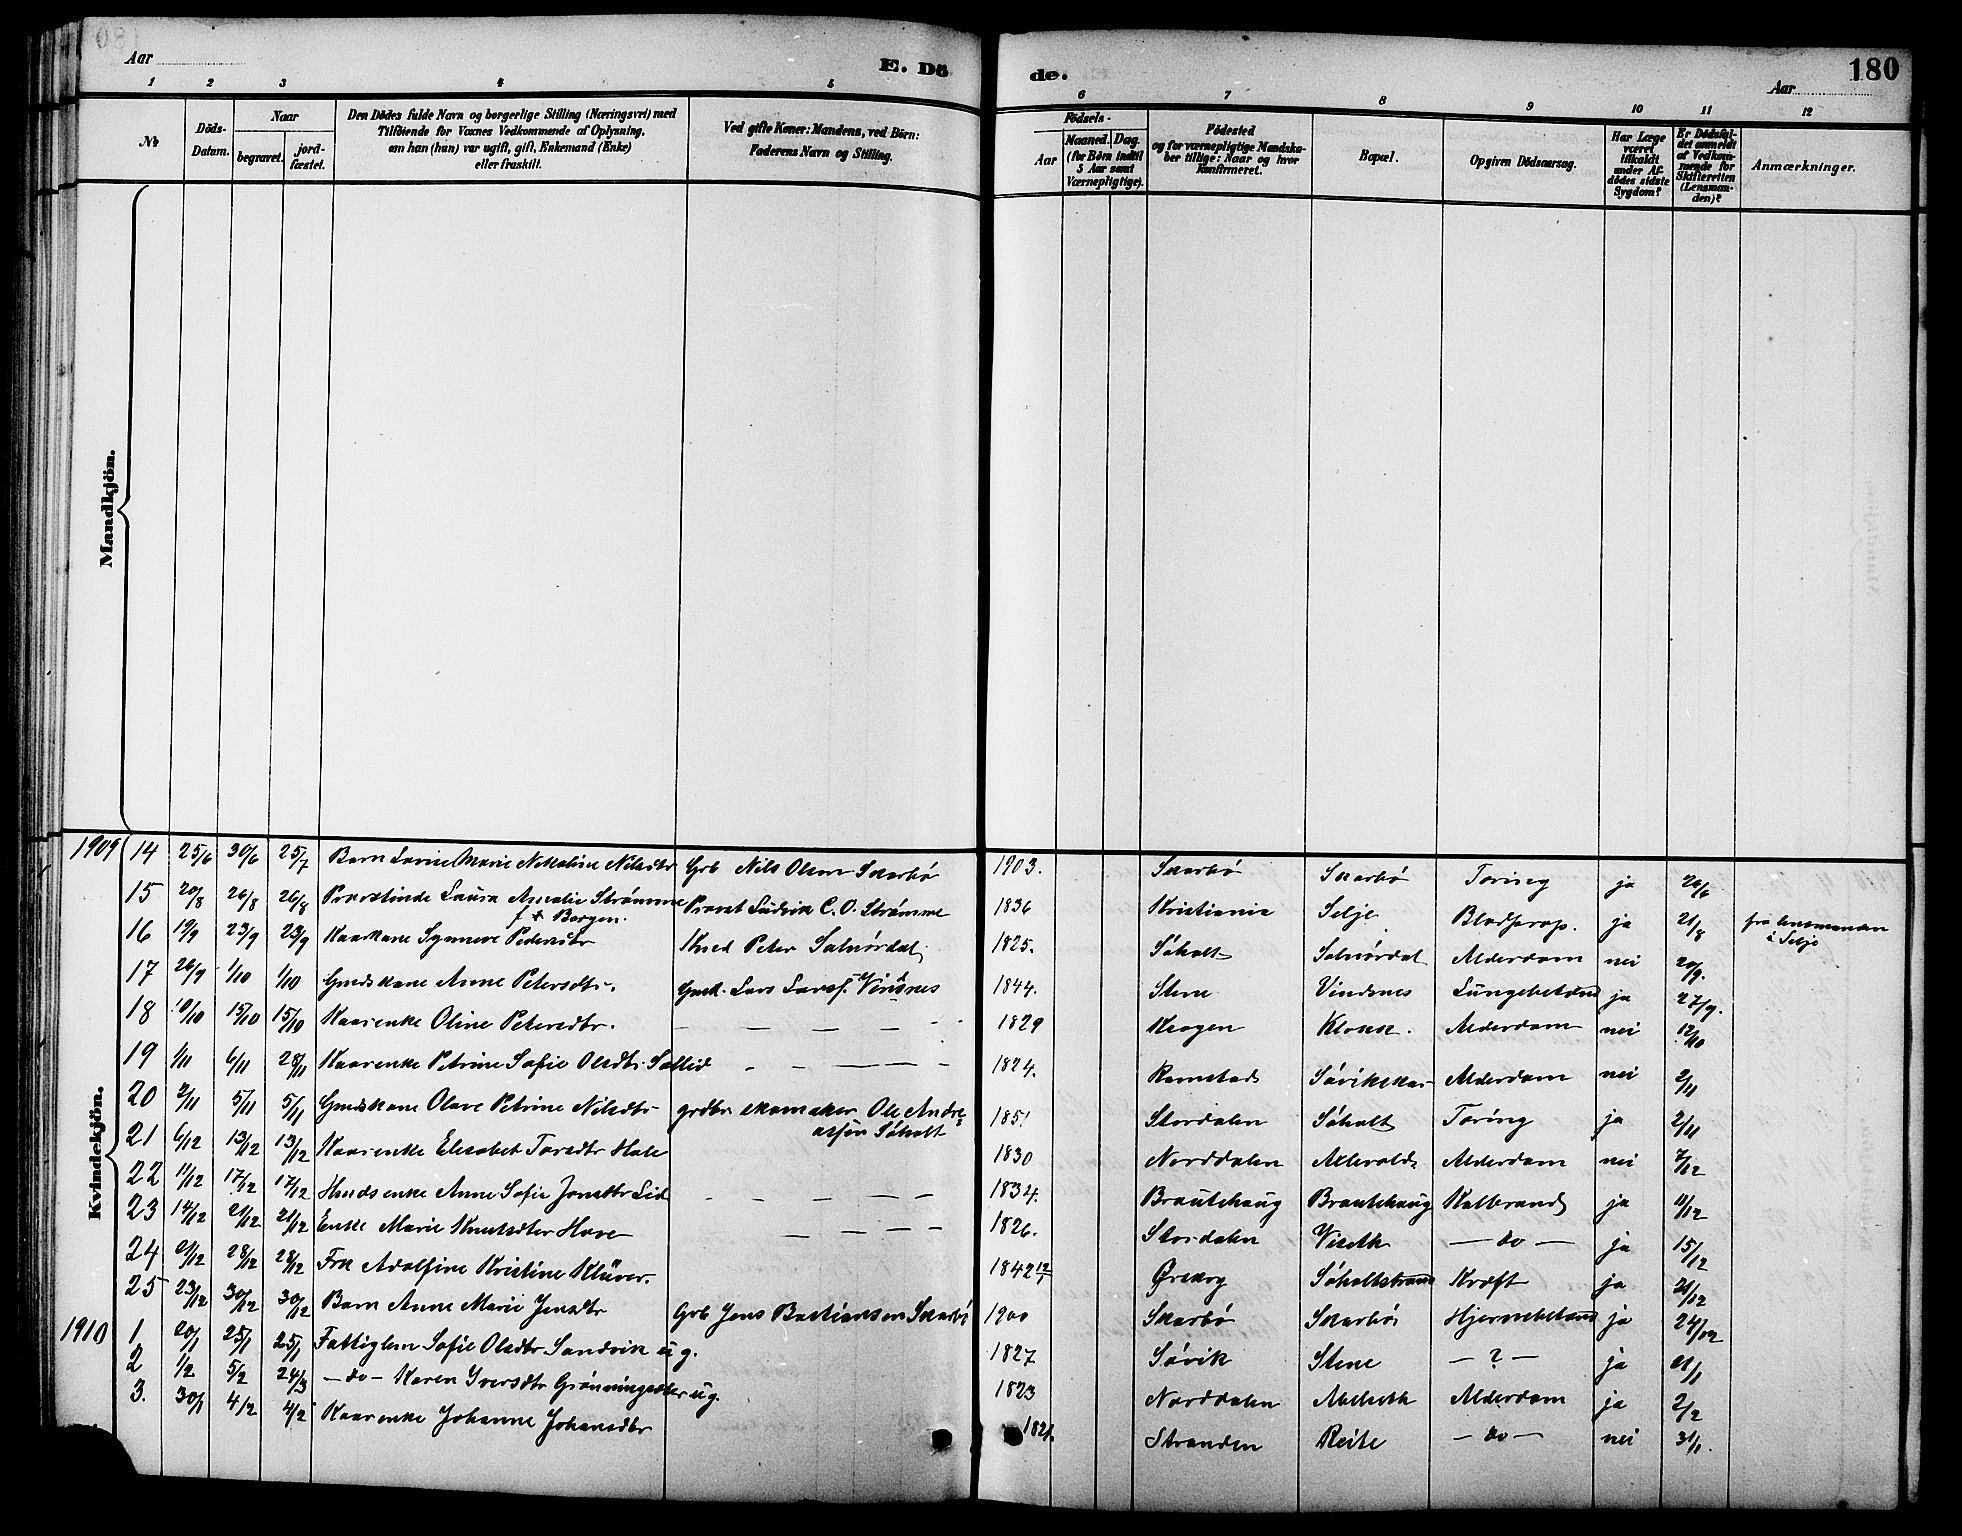 Aar
E. Dö
de.
180
Aar
1 2 3 4 5 6 7 8 9 10 11 12
No
Döds-
Datum.
Naar
begravet.
jord-
fæstet.
Den Dödes fulde Navn og borgerlige Stilling (Næringsvei) med
Tilföiende for Voxnes Vedkommende af Oplysning,
om han (hun) var ugift, gift, Enkemand (Enke)
eller fraskilt.
Ved gifte Koner: Mandens, ved Börn:
Faderens Navn og Stilling.
Födsels-
Aar
Maaned. Dag.
(for Börn indtil
5 Aar samt
Værnepligtige).
Födested
og for værnepligtige Mandska-
ber tillige: Naar og hvor
konfirmeret.
Bopæl.
Opgiven Dödsaarsag.
Har Læge
været
tilkaldt
under Af-
dödes sidste
Sygdom?
Er Dödsfal-
det anmeldt
af Vedkom-
mende for
Skifteretten
(Lensman-
den)?
Anmærkninger.
Mandkjön.
Kvindekjön.
1909 14 25/6 30/6 25/7 Barn Lovise Marie Nikoline Nilsdtr Grb Nils Olsen Skarbø 1903. Skarbø Skarbø Tæring ja 26/6
15 20/8 26/8 26/8 Provstinde Laura Amalie Strømme Provst Ludvik C. O. Strømme 1836 Kristiania Selje Blodprop. ja 21/8 fra lensmanden
i Selje
f. Bergen.
16 19/9 23/9 23/9 Kaarkone Synneve Pedersdtr Knud Peter Solnørdal 1825. Søholt Solnørdal Alderdom nei 20/9.
17 26/9 1/10 1/10 Gmdskone Anne Petersdtr. Gmd. Lars Larsf. Vindsnes 1844. Stene Vindsnes Lungebetænd ja 27/9.
18 10/10 15/10 15/10 Kaarenke Oline Petersdtr. — — — — 1829 Krogen Klokk. Alderdom nei 12/10
19 1/11 6/11 28/11 Kaarenke Petrine Sofie Olsdtr. — — — 1824. Ramstad Søvikskar Alderdom nei 2/11
20 2/11 5/11 5/11 Gmdskone Olave Petrine Nilsdtr grdbr skomaker Ole Andre=
asfen Søholt 1851 Stordalen Søholt Tæring ja 2/11
21 6/12 13/12 13/12 Kaarenke Elisabet Toredtr Hole 1830 Norddalen Alderdom nei 7/12
22 11/12 17/12 17/12 Husdsenke Anne Sofie Jonsdtr Lid — — — — 1834. Brautehaug Brautehaug Koldbrand ja 11/12
23 14/12 21/12 21/12 Enke Marie Knutsdter Hove — — — 1826. Stordalen Viseth — do — ja 15/12
24 21/12 28/12 28/12 Frk Adolfine Kristine Klüver. 1842 12/1 Ørskog Søholtstrand Kræft ja 21/12
25 23/12 30/12 30/12 Barn Anne Marie Jensdtr Grb Jens Bastiansen Skarbø 1900 Skarbø Skarbø Hjernebetænd ja 24/12
1910 1 20/1 25/1 25/1 Fattiglem Sofie Olsdtr Sandvik ug. 1827 Søvik Stene — ? — ja 21/1
2 1/2 5/2 24/3 — do — Karen Iversdtr Grønningsæter ug. 1823 Norddalen Abelseth Alderdom ja 2/2
3. 30/1 4/2 4/2 Kaarenke Johanne Johansdtr 1821. Stranden Reite — do — nei 31/1.